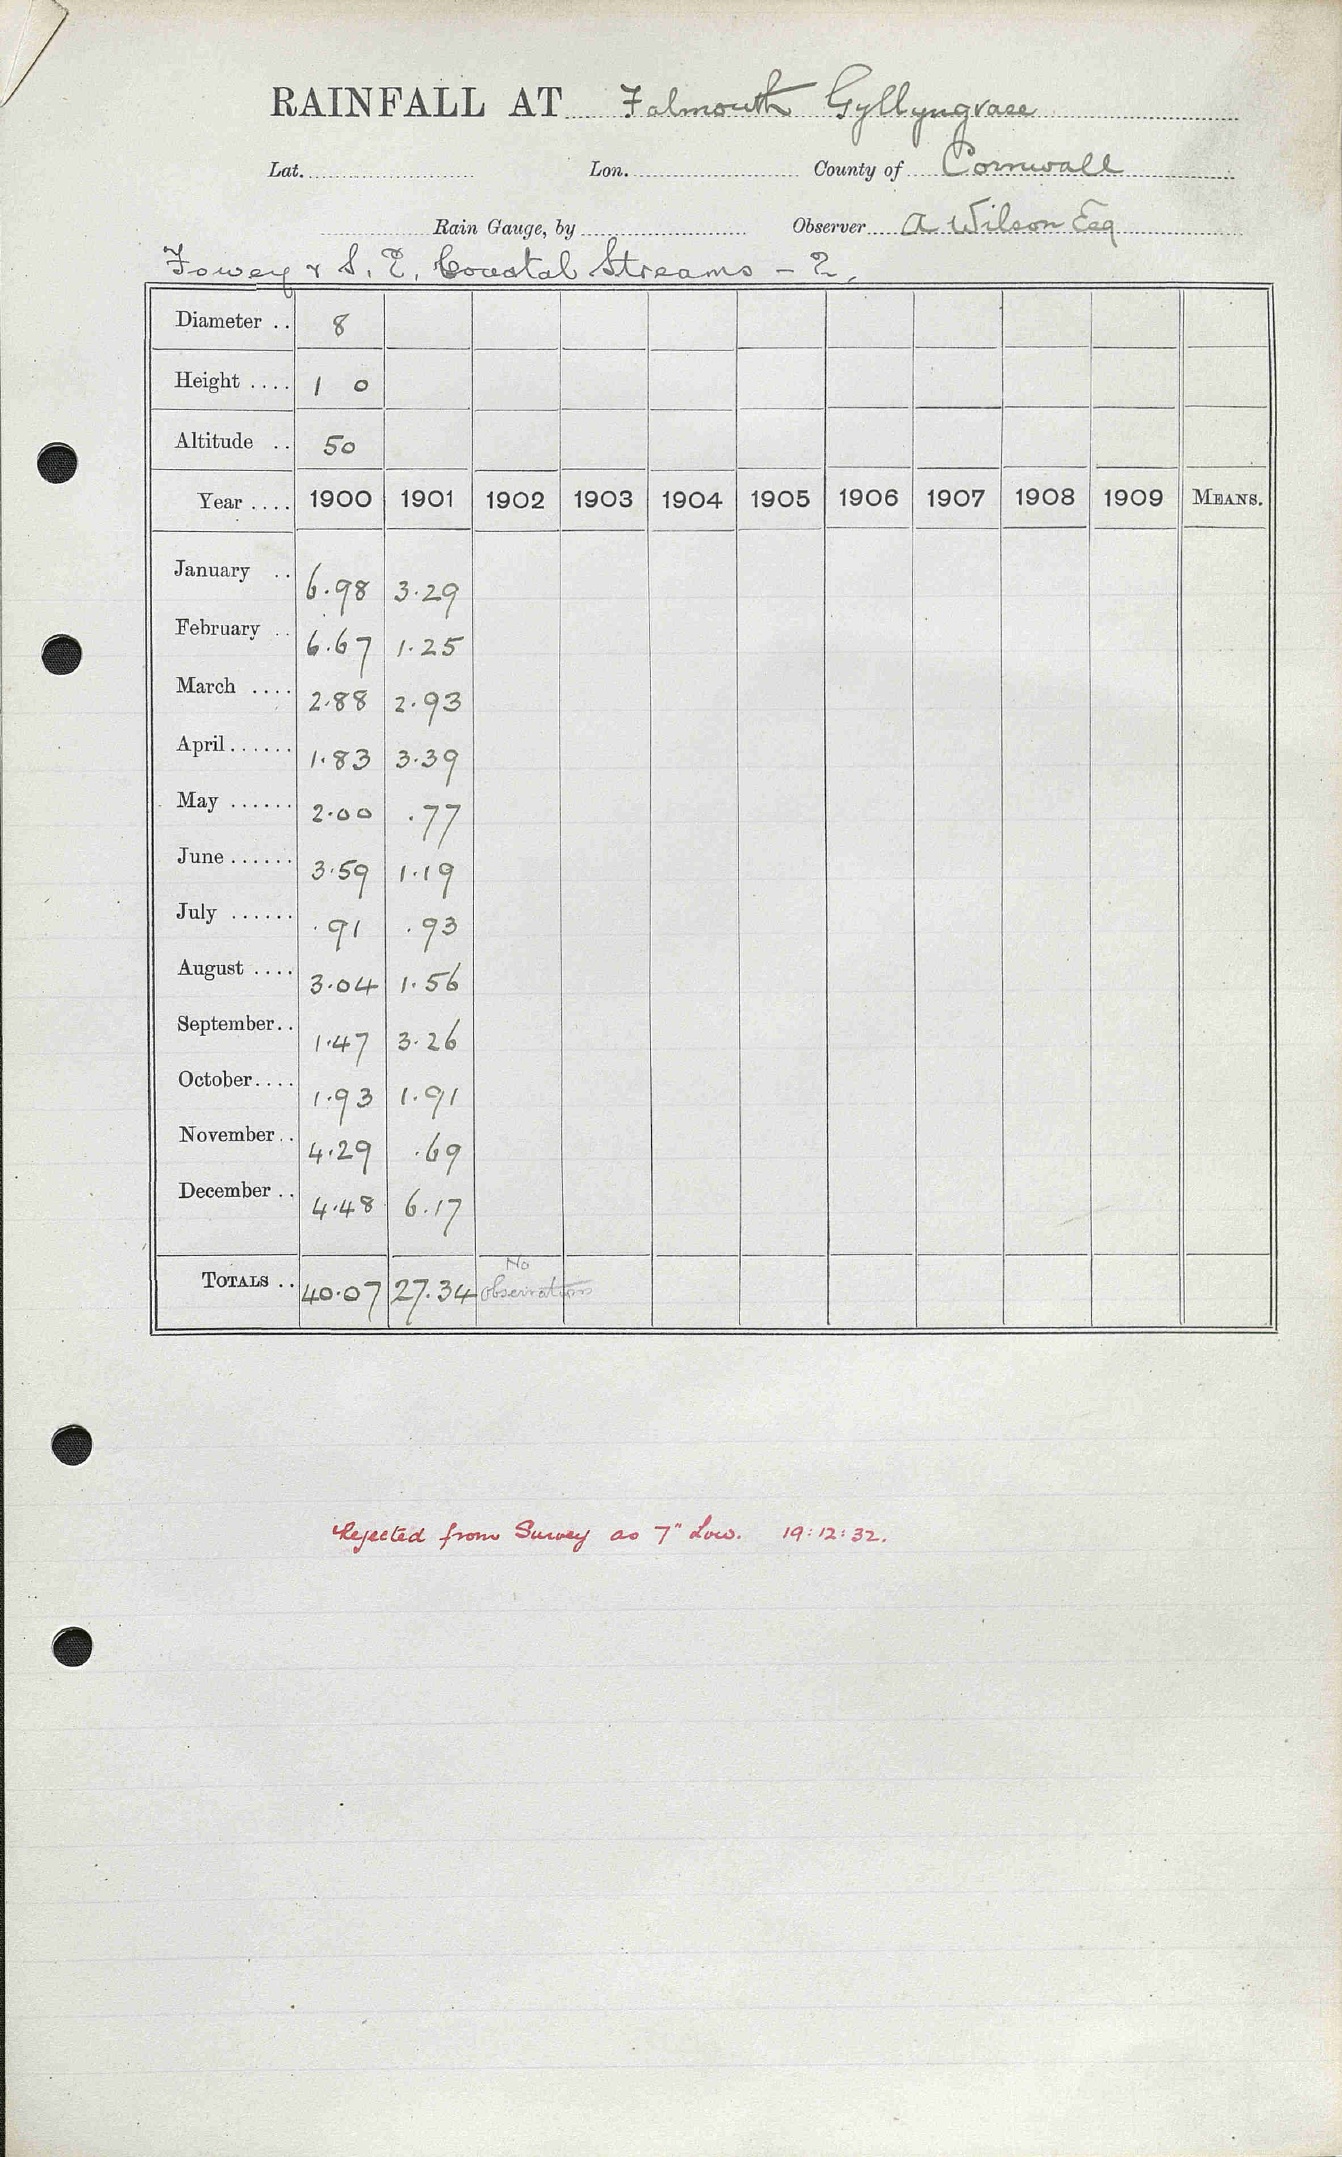 RAINFALL AT Falmouth Gyllyngvase
Lat. Lon. County of Cornwall
Rain Gauge, by Observer A Wilson Esq
Fowey & S. E. Coastal Streams - 2.
Diameter .. 8
Height .... 1 0
Altitude .. 50
Year .... 1900 1901 1902 1903 1904 1905 1906 1907 1908 1909 MEANS.
January .. 6.98 3.29
February .. 6.67 1.25
March .... 2.88 2.93
April ...... 1.83 3.39
May ...... 2.00 .77
June ...... 3.59 1.19
July ...... .91 .93
August .... 3.04 1.56
September .. 1.47 3.26
October .... 1.93 1.91
November .. 4.29 .69
December .. 4.48 6.17
TOTALS .. 40.07 27.34 No observations
Rejected from Survey as 7" Low. 19:12:32.